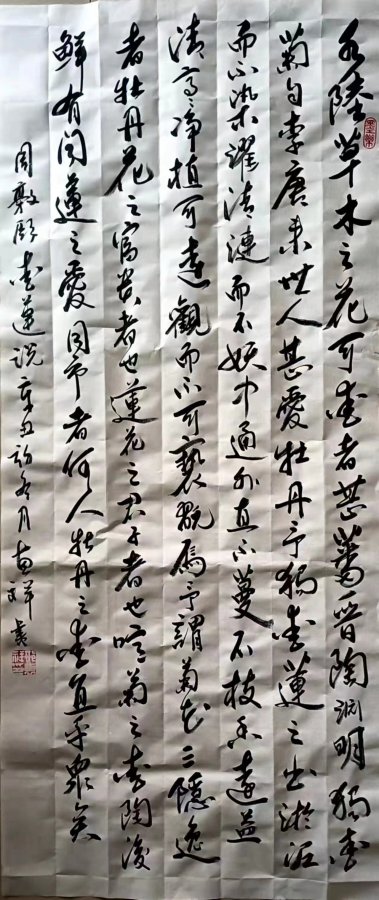 水陸草木之花可愛者甚蕃晉陶淵明獨愛
菊自李唐來世人甚愛牡丹予獨愛蓮之出淤泥
而不染濯清漣而不妖中通外直不蔓不枝香遠益
清亭〻净植可遠觀而不可褻翫焉予謂菊花之隱逸
者牡丹花之富貴者也蓮花之君子者也噫菊之愛陶後
鮮有聞蓮之愛同予者何人牡丹之愛宜乎眾矣
周敦頤愛蓮說辛丑初冬月祥書